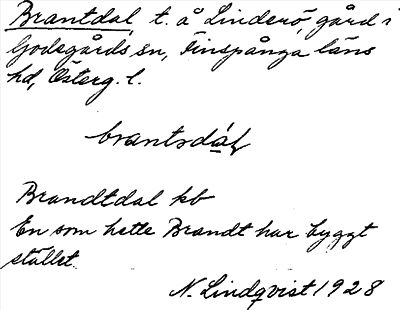 Brantdal, t. å Linderö, gård i
Godegårds sn, Finspånga läns
hd, Österg. l.
brantsdál
Brandtdal kb
En som hette Brandt har byggt
stället.
N. Lindqvist 1928